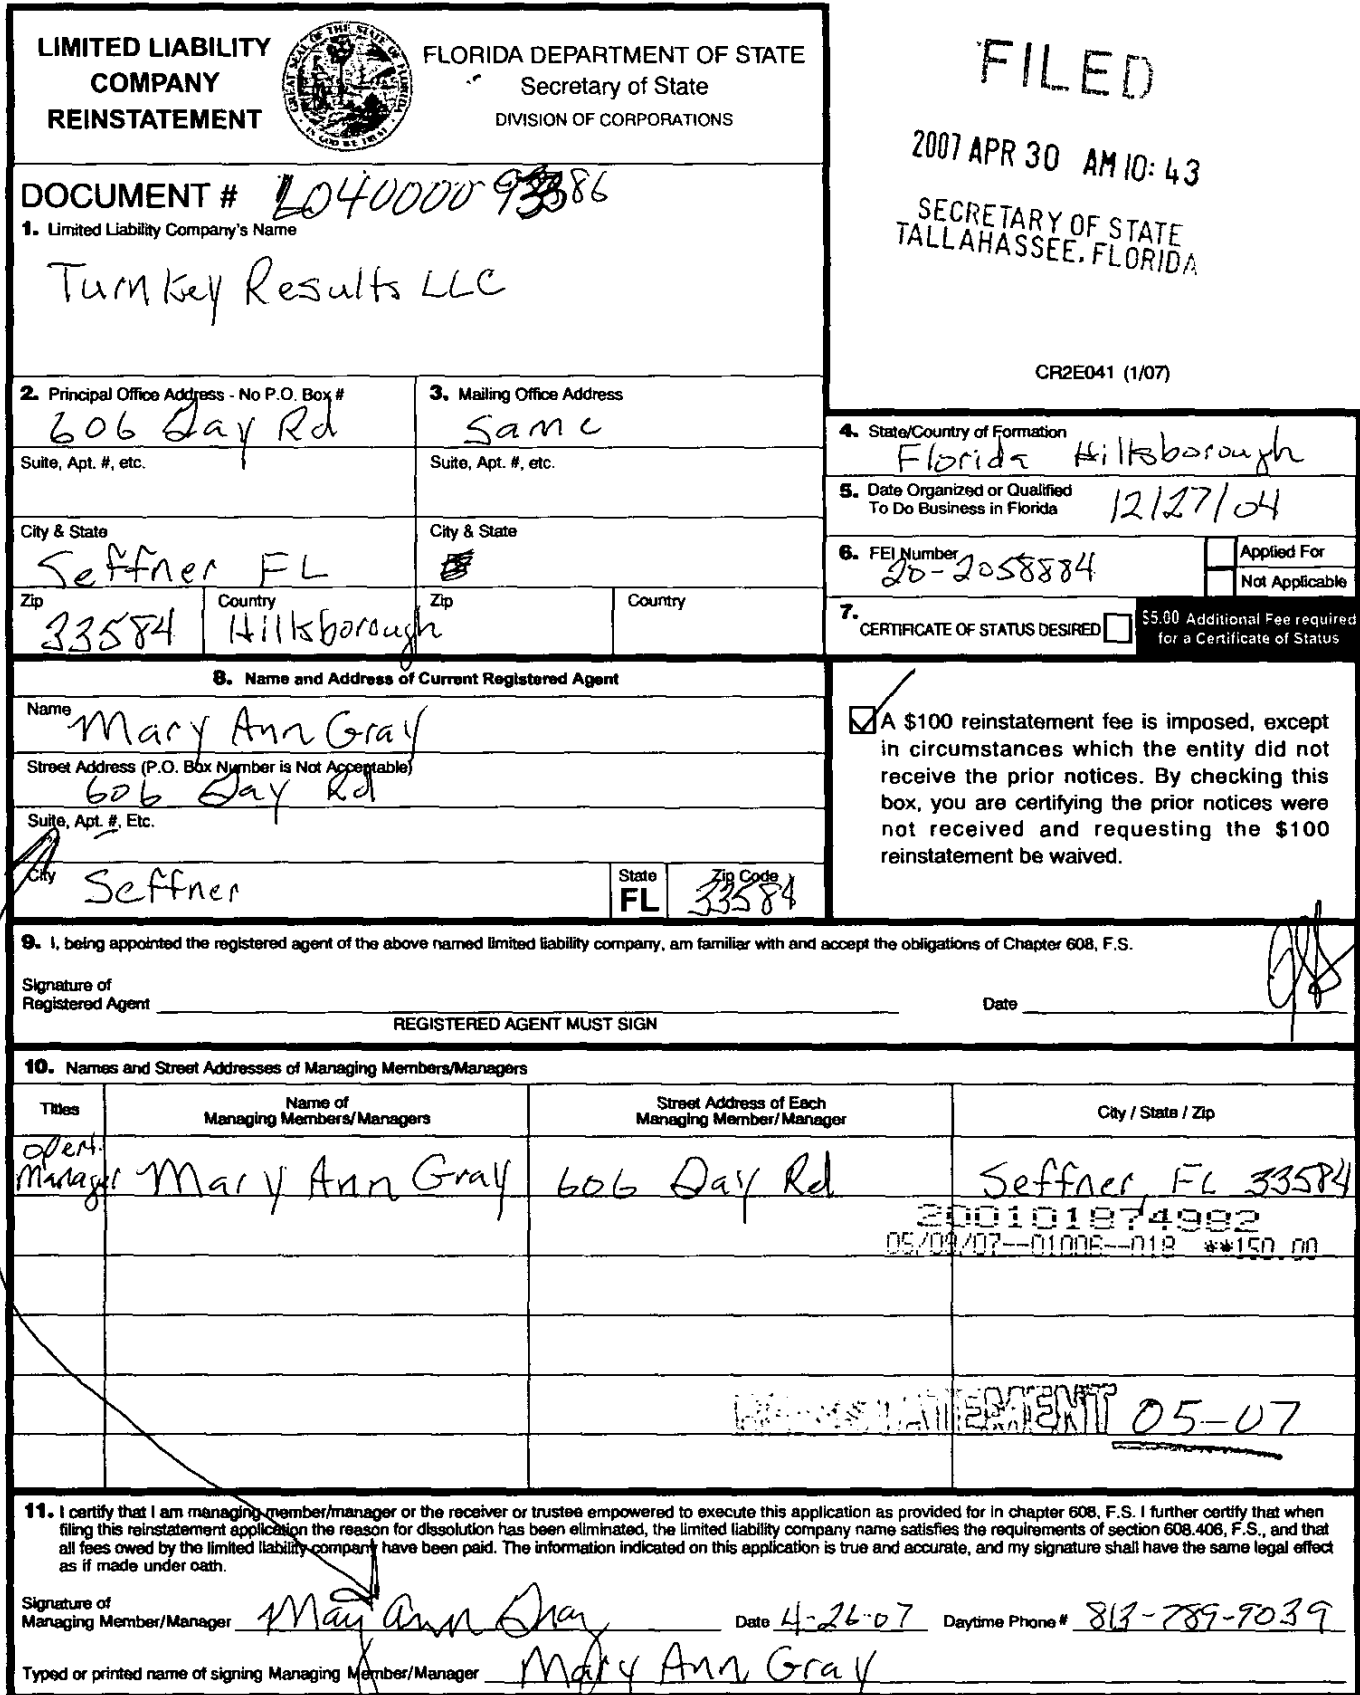 LIMITED LIABILITY
COMPANY
REINSTATEMENT
FLORIDA DEPARTMENT OF STATE
Secretary of State
DIVISION OF CORPORATIONS
FILED
2007 APR 30 AM 10:43
SECRETARY OF STATE
TALLAHASSEE, FLORIDA
CR2E041 (1/07)
DOCUMENT # L04000093386
1. Limited Liability Company's Name
Turnkey Results LLC
2. Principal Office Address - No P.O. Box #
606 Day Rd
3. Mailing Office Address
Same
Suite, Apt. #, etc.
Suite, Apt. #, etc.
City & State
Seffner FL
City & State
Zip
33584
Country
Hillsborough
Zip
Country
4. State/Country of Formation
Florida Hillsborough
5. Date Organized or Qualified
To Do Business in Florida
12/27/04
6. FEI Number
20-2058884
Applied For
Not Applicable
7. CERTIFICATE OF STATUS DESIRED
$5.00 Additional Fee required
for a Certificate of Status
8. Name and Address of Current Registered Agent
Name
Mary Ann Gray
Street Address (P.O. Box Number is Not Acceptable)
606 Day Rd
Suite, Apt. #, Etc.
City
Seffner
State
FL
Zip Code
33584
A $100 reinstatement fee is imposed, except
in circumstances which the entity did not
receive the prior notices. By checking this
box, you are certifying the prior notices were
not received and requesting the $100
reinstatement be waived.
9. I, being appointed the registered agent of the above named limited liability company, am familiar with and accept the obligations of Chapter 608, F.S.
Signature of
Registered Agent
Date
REGISTERED AGENT MUST SIGN
10. Names and Street Addresses of Managing Members/Managers
Titles
Name of
Managing Members/Managers
Street Address of Each
Managing Member/Manager
City / State / Zip
Opert.
Manager Mary Ann Gray 606 Day Rd Seffner, FL 33584
200101874982
05/09/07--01006--018 **150.00
REINSTATEMENT 05-07
11. I certify that I am managing member/manager or the receiver or trustee empowered to execute this application as provided for in chapter 608, F.S. I further certify that when
filing this reinstatement application the reason for dissolution has been eliminated, the limited liability company name satisfies the requirements of section 608.406, F.S., and that
all fees owed by the limited liability company have been paid. The information indicated on this application is true and accurate, and my signature shall have the same legal effect
as if made under oath.
Signature of
Managing Member/Manager Mary Ann Gray Date 4-26-07 Daytime Phone # 813-789-9039
Typed or printed name of signing Managing Member/Manager Mary Ann Gray